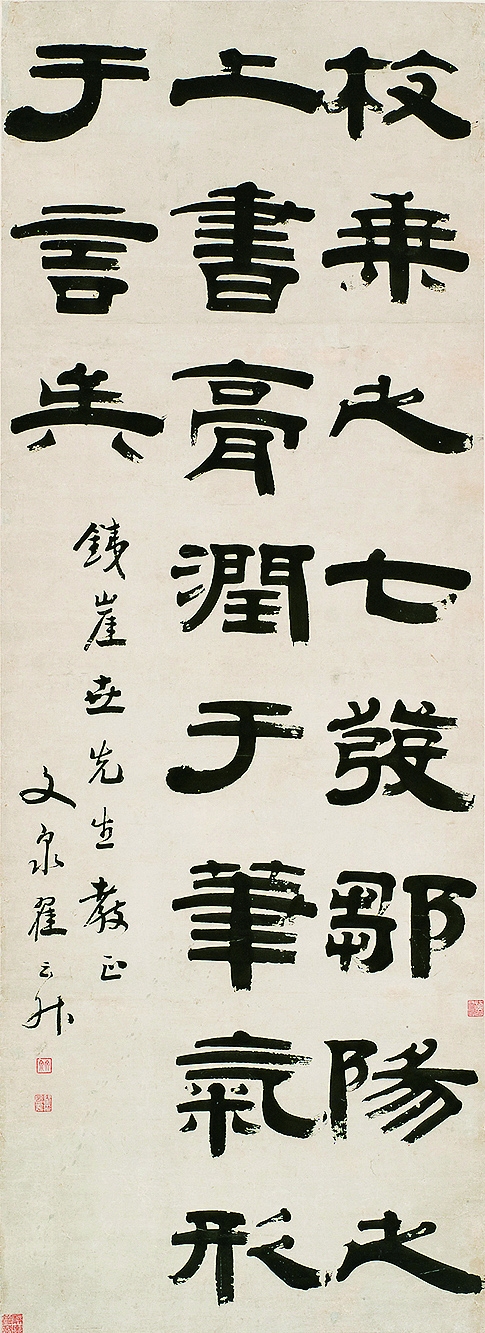 枚乘之七發鄒陽之
上書膏潤于筆氣形
于言矣
銕崖世先生教正
文泉翟云升